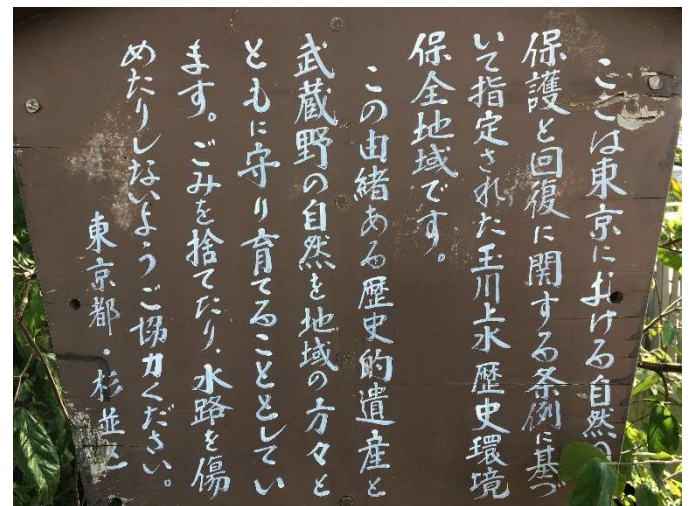 ここは東京における自然の
保護と回復に関する条例に基づ
いて指定された玉川上水歴史環境
保全地域です。
この由緒ある歴史的遺産と
武蔵野の自然を地域の方々と
ともに守り育てることとしてい
ます。ごみを捨てたり、水路を傷
めたりしないようご協力ください。
東京都・杉並区